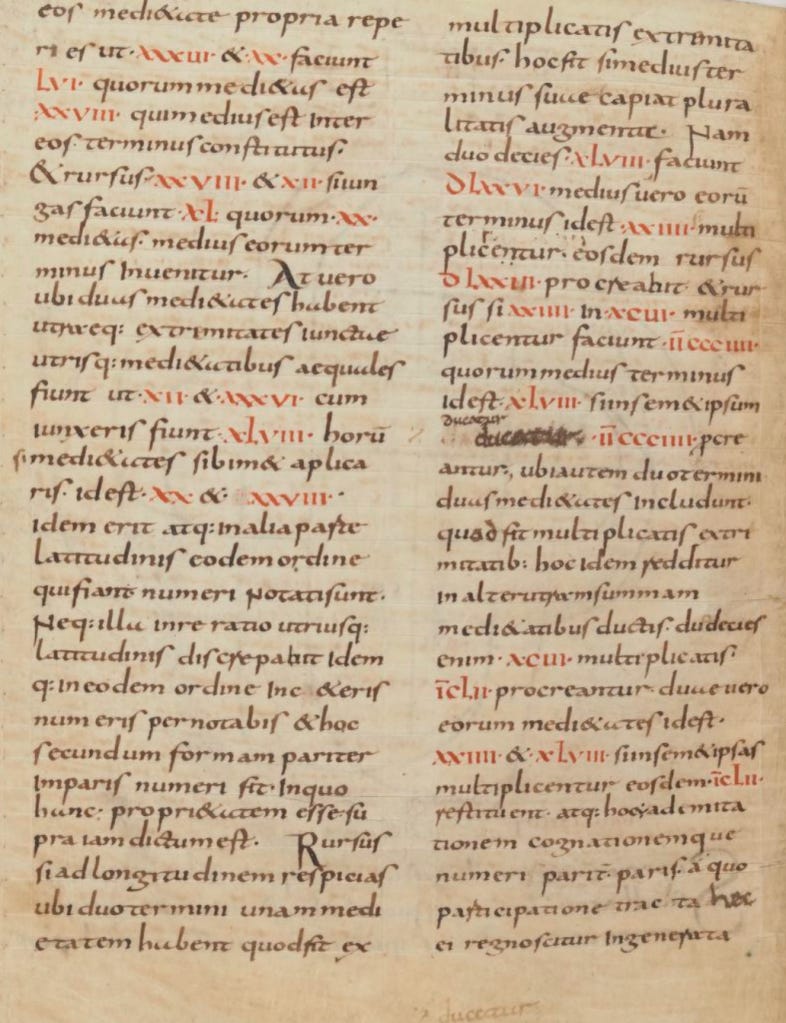 eos medi&ate propria repe
ri es ut· XXXVI· & XX· faciunt
LVI· quorum medi&as est
XXVIII· qui medius est Inter
eos· terminus constitutus·
& rursus· XXVIII· & XII· si iun
gas faciunt· XL· quorum· XX·
medi&as· medius eorum ter
minus Inuenitur· At uero
ubi duas medi&ates habent
utraeq: extrimitates iunctae
utrisq: medi&atibus aequales
fiunt ut· XII· & XXXVI· cum
iunxeris fiunt· XLVIII· horū
si medi&ates sibim& aplica
ris· id est· XX &· XXVIII·
idem erit atq: in alia parte
latitudinis eodem ordine
qui fiant numeri Notati sunt·
Neq: illa in re ratio utriusq:
latitudinis discrepabit Idem
q: in eodem ordine Inc &eris
numeris pernotabis & hoc
secundum formam pariter
Imparis numeri fit· In quo
hanc· propri&atem esse su
pra iam dictum est· Rursus
si ad longitudinem respicias
ubi duo termini unam medi
etatem habent quod fit ex
multiplicatis extremita
tibus· hoc fit si medius ter
minus suae capiat plura
litatis augmenta· Nam
duodecies· XLVIII· faciunt
DLXXVI· medius uero eorū
terminus id est· XXIIII· multi
plicentur· eosdem rursus
DLXXVI· procreabit· & rur
sus si XXIIII· In· XCVI· multi
plicentur faciunt· IĪCCCIIII·
quorum medius terminus
id est· XLVIII· si in sem&ipsum
ducatur
ducatur· IĪCCCIIII· pcre
antur, ubi autem duo termini
duas medi&ates Includunt·
quod fit multiplicatis extri
mitatib: hoc Idem redditur
in alterutram summam
medi&atibus ductis· duodecies
enim· XCVI· multiplicatis·
ĪCLII· procreantur· duae uero
eorum medi&ates id est·
XXIIII· & XLVIII· si in sem&ipsas
multiplicentur eosdem· ĪCLII·
restituent· atq: hoc ad imita
tionem cognationemque
numeri parit· paris· a quo
participatione tracta haec
ei regnoscitur Ingenerata
ducatur